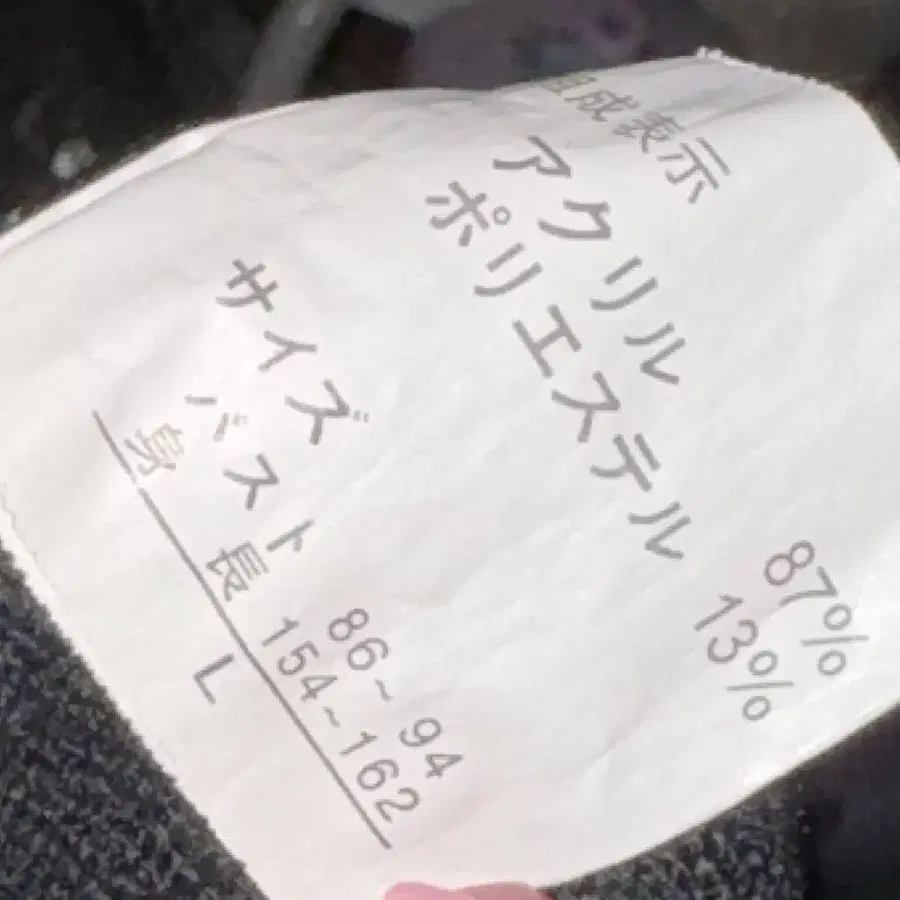 組成表示
アクリル 87%
ポリエステル 13%
サイズ
バスト 86~94
身長 154~162
L